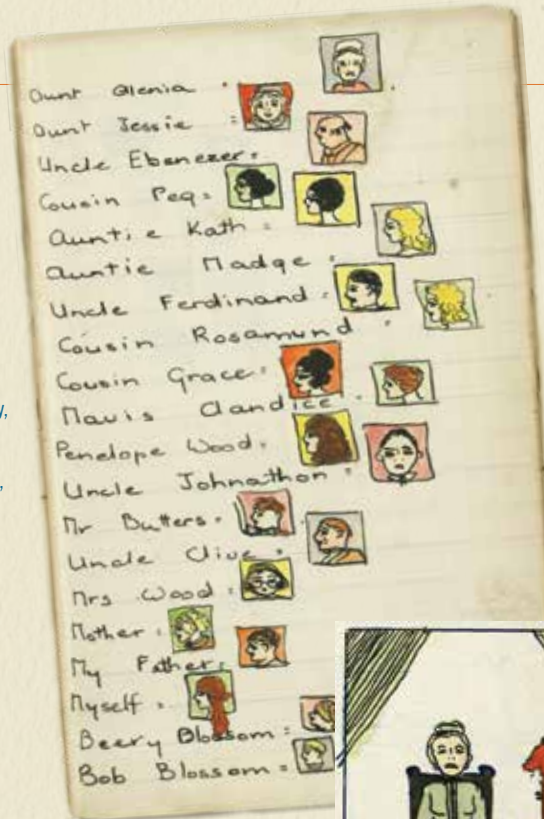 Aunt Glenia .
Aunt Jessie =
Uncle Ebenezer =
Cousin Peg =
Auntie Kath =
Auntie Madge =
Uncle Ferdinand =
Cousin Rosamund
Cousin Grace =
Mavis Clandice .
Penelope Wood .
Uncle Johnathon =
Mr Butters =
Uncle Clive =
Mrs Wood =
Mother =
My Father =
Myself =
Beery Blossom =
Bob Blossom =